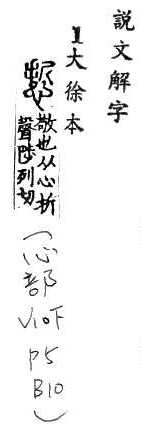 說文解字
1大徐本
敬也从心折
聲陟列切
(心部
V10F
P5
B10)